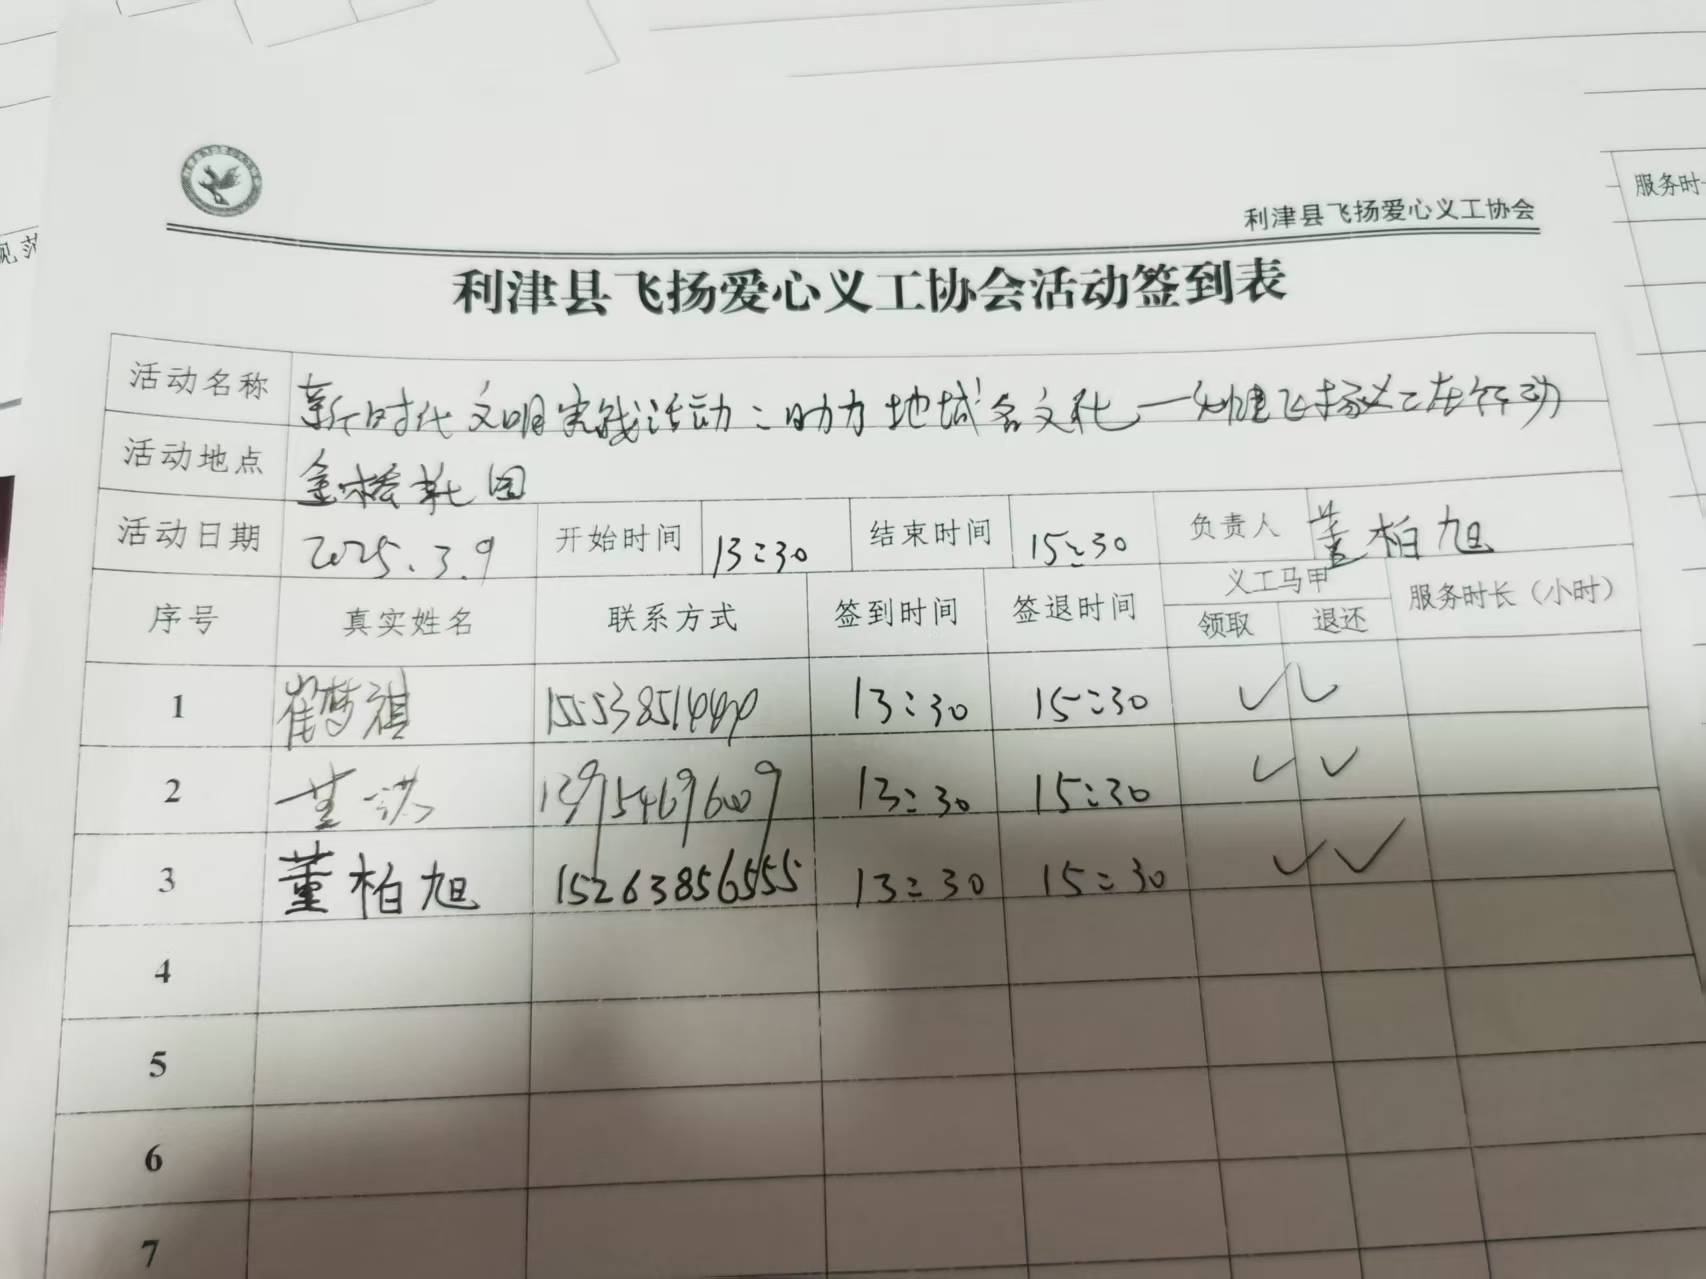 利津县飞扬爱心义工协会
服务时
利津县飞扬爱心义工协会活动签到表
活动名称 新时代文明实践活动:助力地域名文化一 飞扬义工在行动
活动地点 金桥花园
活动日期 2025.3.9 开始时间 13:30 结束时间 15:30 负责人 董柏旭
序号 真实姓名 联系方式 签到时间 签退时间 义工马甲 服务时长(小时)
领取 退还
1 崔梦祺 13:30 15:30 ✓ ✓
2 董 13:30 15:30 ✓ ✓
3 董柏旭 15263856555 13:30 15:30 ✓ ✓
4
5
6
7